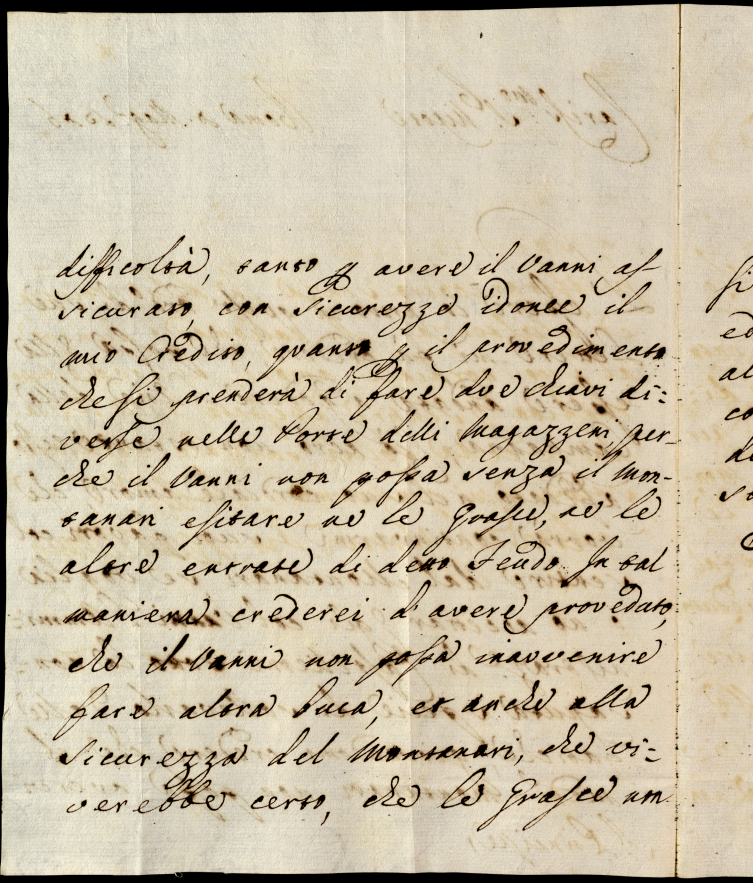 difficoltà, tanto p avere il Vanni as-
sicurato, con sicurezze idonee il
mio Credito, quanto p il provedimento
che si prenderà di fare due chiavi di=
verse nelle Porte delli Magazzeni, per-
che il Vanni non possa senza il Mon-
tanari esitare ne le Grasce, ne le
altre entrate di detto Feudo. In tal
maniera crederei d'avere proveduto,
che il Vanni non possa inavvenire
fare altra buca, et anche alla
sicurezza del Montanari, che vi=
verebbe certo, che le Grasce non